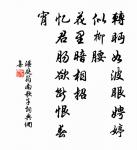 轉眄如波眼娉婷
似柳腰
花裏暗相招
憶君腸欲斷恨春
宵
溫庭筠南歌子詞典網
集